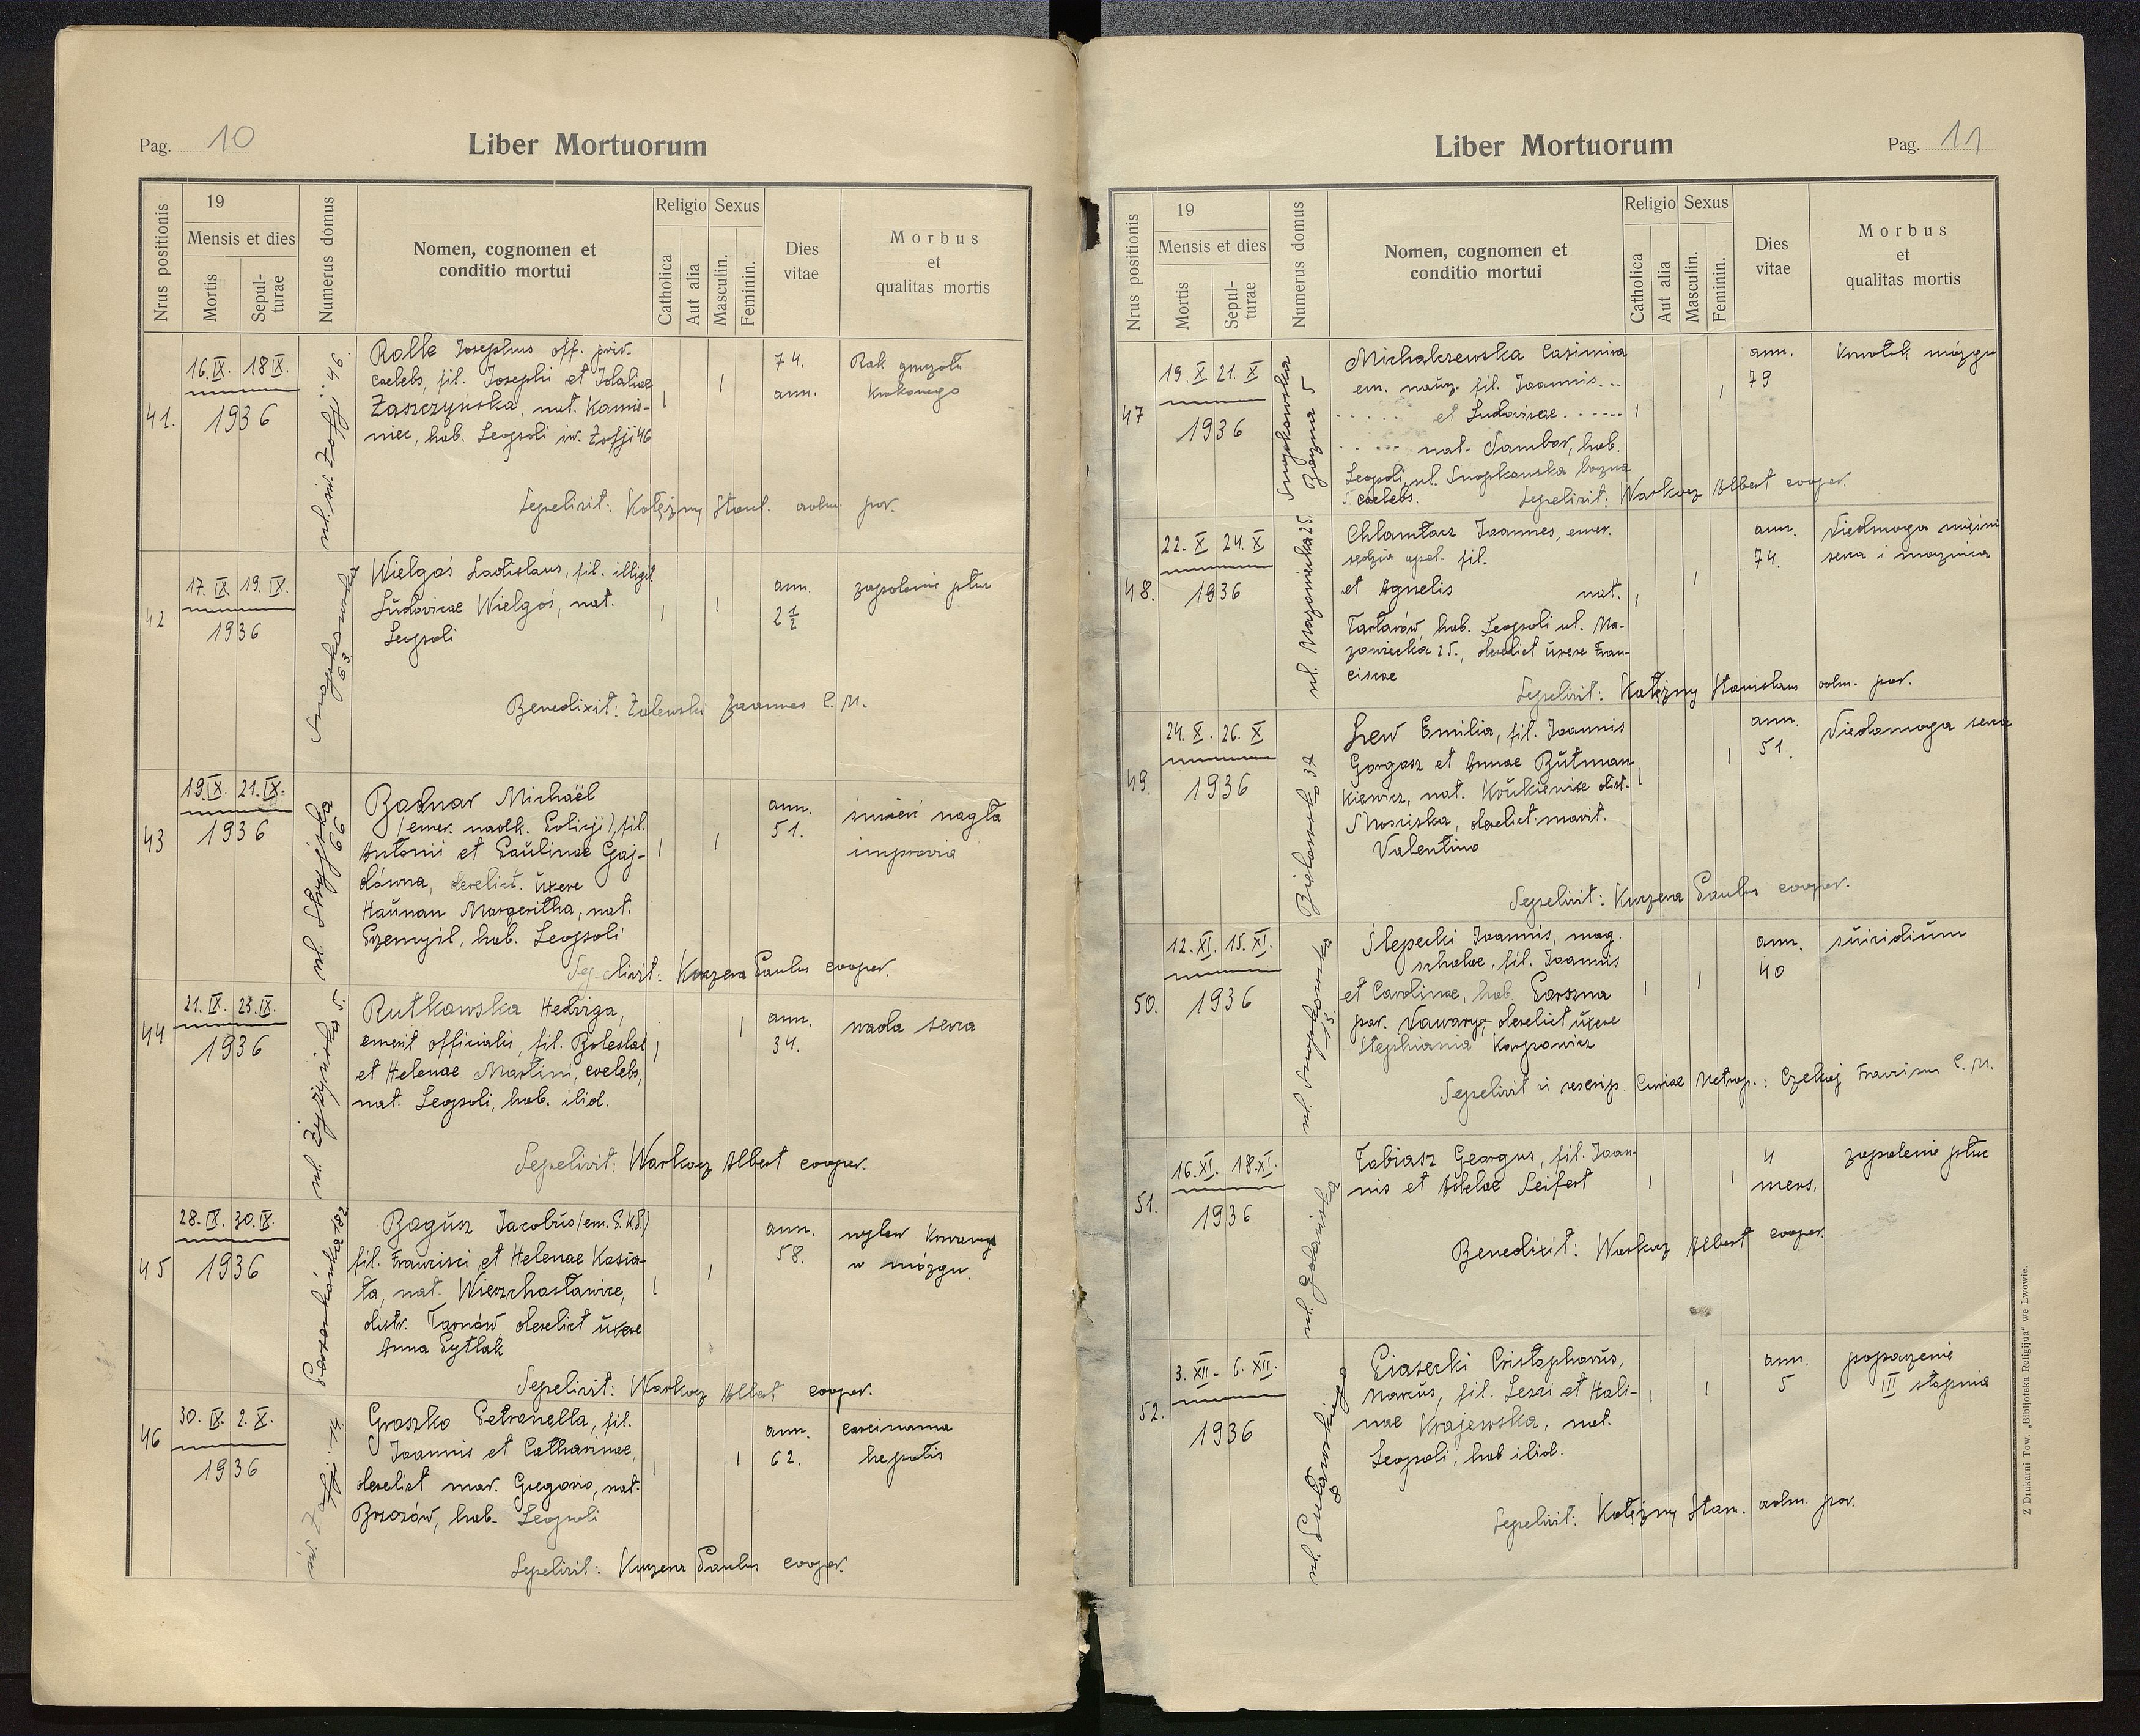 Pag. 10
Liber Mortuorum
Nrus positionis
19
Mensis et dies
Mortis
Sepul-
turae
Numerus domus
Nomen, cognomen et
conditio mortui
Religio
Catholica
Aut alia
Sexus
Masculin.
Feminin.
Dies
vitae
Morbus
et
qualitas mortis
41.
16.IX. 18 IX.
1936
ul. św. Zofji: 46.
Rolle Josephus off. priv.
caelebs, fil. Josephi et
Zaszczyńska, nat. Kamie-
niec, hab. Leopoli św. Zofji 46
74.
ann.
Rak gruczołu
krokowego
Sepelivit: Kołężny Stanisl. adm. par.
42
17. IX. 19. IX.
1936
Snopkowska
63.
Wielgoś Ladislaus, fil. illigit.
Ludovicae Wielgoś, nat.
Leopoli
ann.
2 1/2
zapalenie płuc
Benedixit: Zalewski Joannes C. M.
43
19.IX. 21.IX.
1936
ul. Stryjska
66
Bodnar Michaël
(emer. nadk. Policji), fil.
Antonii et Paulinae Gaj-
dówna, derelict. uxore
Hauman Margeritha, nat.
Przemyśl, hab. Leopoli
ann.
51.
śmierć nagła
improvia
Sepelivit: Kurzeva Paulus cooper.
44
21. IX. 23.IX.
1936
ul. Żyżyńska 5.
Rutkowska Hedviga,
emerit officialis, fil. Boleslai
et Helenae Martini, coelebs,
nat. Leopoli, hab. ibid.
ann.
34.
wada serca
Sepelivit: Warkocz Albert cooper.
45
28. IX. 30. IX.
1936
Persenkówka 182.
Bogusz Jacobus (em. P.K.P.)
fil. Francisci et Helenae Kasia-
ta, nat. Wierzchosławice,
distr. Tarnów, derelict uxore
Anna Pytlak
ann.
58.
wylew krwawy
w mózgu.
Sepelivit: Warkocz Albert cooper.
46
30. IX. 2. X.
1936
św. Zofji: 14.
Groszko Petronella, fil.
Joannis et Catharinae,
derelict mar. Gregorio, nat.
Brzozów, hab. Leopoli
ann.
62.
carcinoma
hepatis
Sepelivit: Kurzeva Paulus cooper.
Liber Mortuorum
Pag. 11
Nrus positionis
19
Mensis et dies
Mortis
Sepul-
turae
Numerus domus
Nomen, cognomen et
conditio mortui
Religio
Catholica
Aut alia
Sexus
Masculin.
Feminin.
Dies
vitae
Morbus
et
qualitas mortis
47
19. X. 21. X
1936
Snopkowska
boczna 5
Michalczewska Casimira
em. naucz. fil. Joannis...
..... et Ludovicae ......
..... nat. Sambor, hab.
Leopoli, ul. Snopkowska boczna
5. caelebs.
ann.
79
krwotok mózgu
Sepelivit: Warkocz Albert cooper.
48.
22. X 24. X
1936
ul. Mazowiecka 25.
Chlamtacz Joannes, emer.
sędzia apel. fil.
et Agnetis nat.
Tartarów, hab. Leopoli ul. Ma-
zowiecka 25., derelict uxore Fran-
ciscae
ann.
74.
Niedmoga mięśni
serca i mocznica
Sepelivit: Kołężny Stanislaus adm. par.
49.
24. X. 26. X
1936
Bielowskiego 37
Lew Emilia, fil. Joannis
Gorgosz et Annae Butman-
kiewicz, nat. Krukienice dist.
Mosciska, derelict marit.
Valentino
ann.
51.
Niedomoga serca
Sepelivit: Kurzeva Paulus cooper.
50.
12. XI. 15. XI.
1936
Slepecki Joannis, mag.
scholae, fil. Joannis
et Carolinae, hab.
par. Nawarya derelict uxore
Stephania Karpowicz
ann.
40
suicidium
Sepelivit vi rescrip. Curiae Metrop.: C. M.
51.
16. XI. 18. XI.
1936
Tobiasz Georgus, fil. Joan-
nis et Adelae Seifert
4
mens.
zapalenie płuc
Benedixit: Warkocz Albert cooper.
52.
3. XII. 6. XII.
1936
Piasecki Cristophorus,
Marcus, fil. Lesci et Hali-
nae Krajewska, nat.
Leopoli, hab ibid.
ann.
5
poparzenie
III stopnia
Sepelivit: Kołężny Stan. adm. par.
Z Drukarni Tow. „Bibljoteka Religijna" we Lwowie.